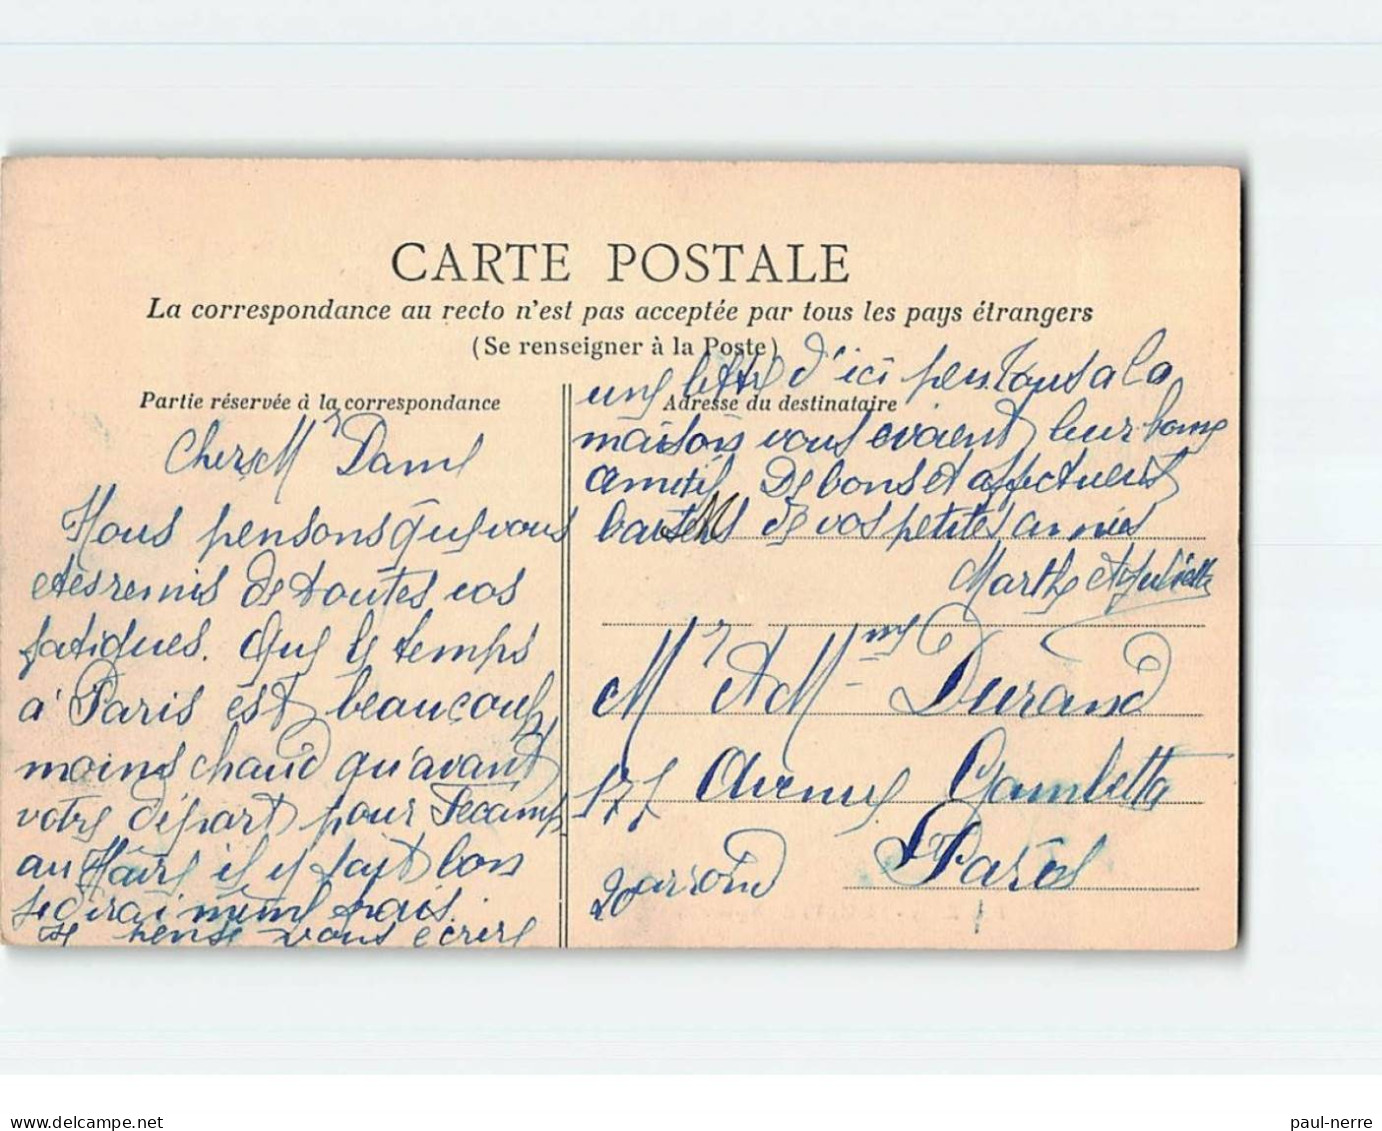 CARTE POSTALE
La correspondance au recto n'est pas acceptée par tous les pays étrangers
(Se renseigner à la Poste)
Partie réservée à la correspondance
Chers Mr Dame
Nous pensons que vous
etes remis de toutes vos
fatigues. Que le temps
à Paris est beaucoup
moins chaud qu'avant
votre départ pour Fecamp
au Havre il y fait bon
je dirai même frais.
je pense vous ecrire
une lettre d'ici peu tous a la
Adresse du destinataire
maison vous evoient leur bonne
amitié De bons et affectueux
baisers de vos petites amies
Marthe et Juliette
Mr et Mme Durand
177 Avenue Gambetta
20 arrond Paris
delcampe.net
paul-nerre